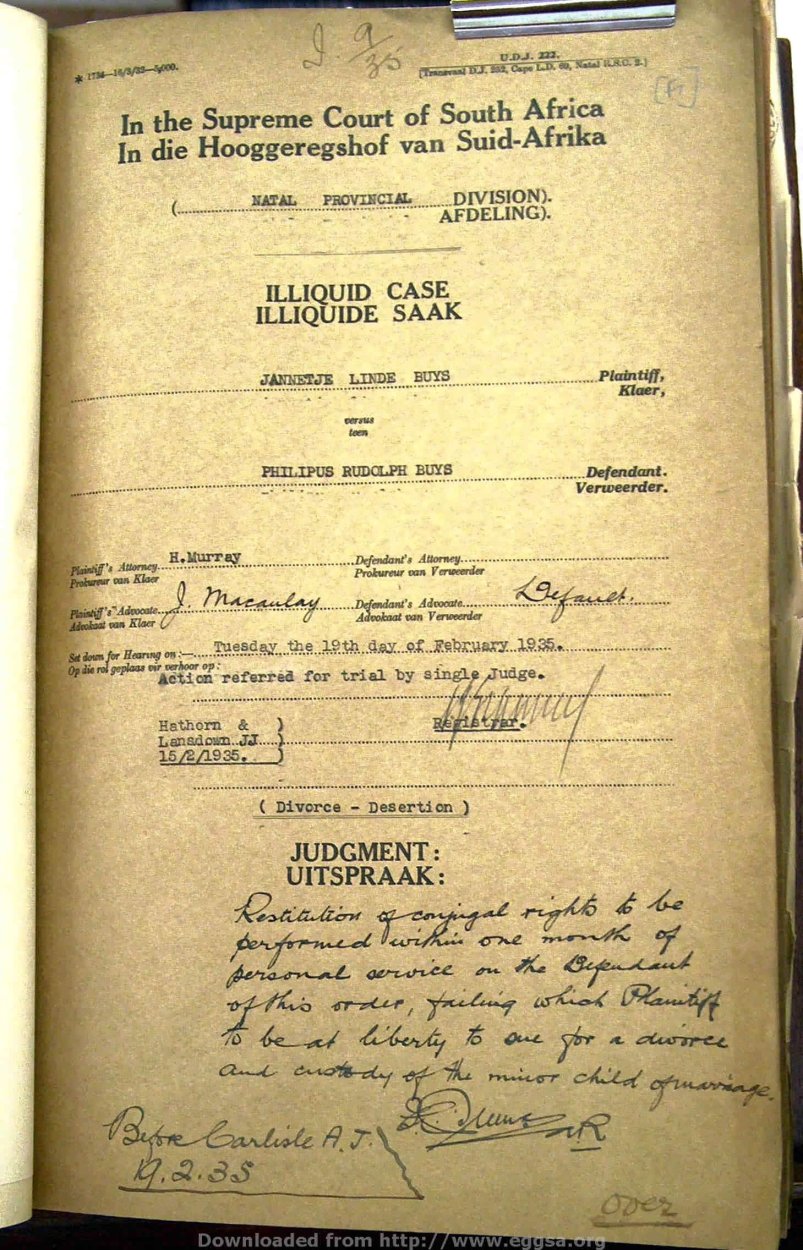 * 1734—16/3/33—5,000.
I. 9/35
U.D.J. 222.
[Transvaal D.J. 252, Cape L.D. 69, Natal R.S.C. 2.]
In the Supreme Court of South Africa
In die Hooggeregshof van Suid-Afrika
(NATAL PROVINCIAL DIVISION).
AFDELING).
ILLIQUID CASE
ILLIQUIDE SAAK
JANNETJE LINDE BUYS Plaintiff,
Klaer,
versus
teen
PHILIPUS RUDOLPH BUYS Defendant.
Verweerder.
Plaintiff's Attorney H. Murray Defendant's Attorney
Prokureur van Klaer Prokureur van Verweerder
Plaintiff's Advocate J. Macaulay Defendant's Advocate Default.
Advokaat van Klaer Advokaat van Verweerder
Set down for Hearing on :— Tuesday the 19th day of February 1935.
Op die rol geplaas vir verhoor op :
Action referred for trial by single Judge.
Hathorn & )
Lansdown JJ. ) Registrar.
15/2/1935. )
( Divorce - Desertion )
JUDGMENT:
UITSPRAAK:
Restitution of conjugal rights to be
performed within one month of
personal service on the Defendant
of this order, failing which Plaintiff
to be at liberty to sue for a divorce
and custody of the minor child of marriage.
Before Carlisle A.J.
19.2.35
over
Downloaded from http://www.eggsa.org